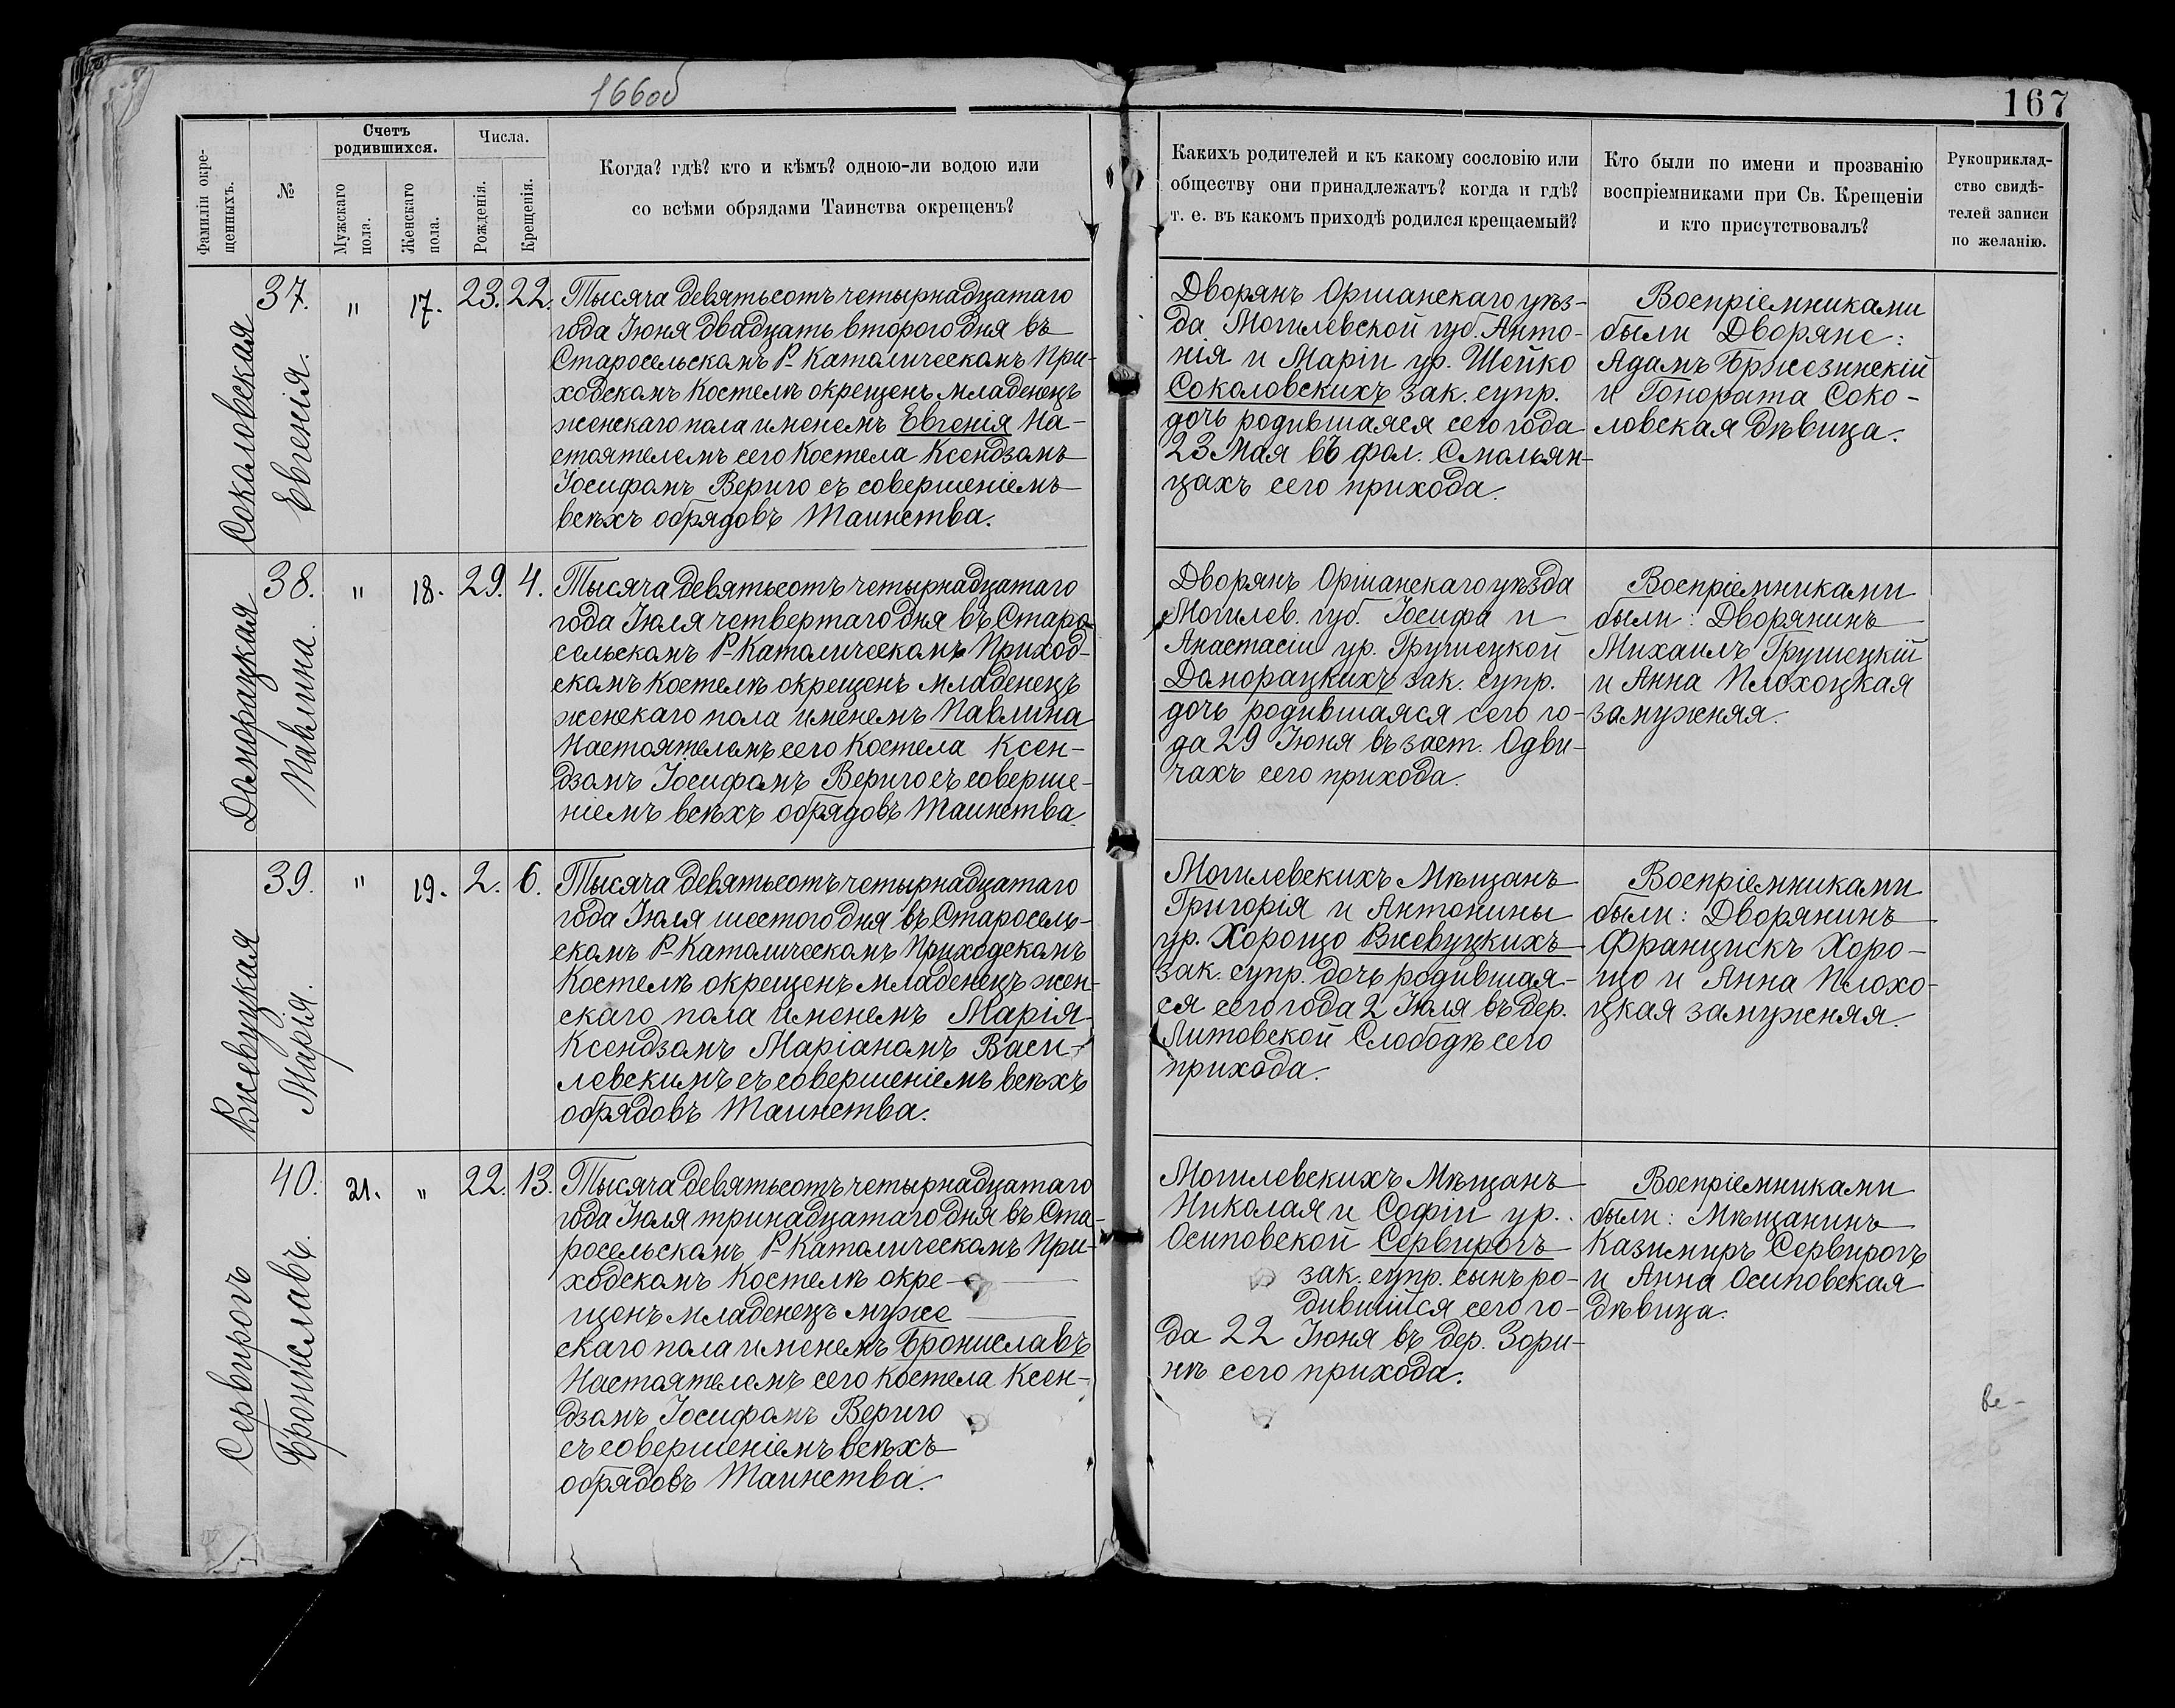 166об
167
Фамиліи окре-
щенныхъ.
№
Счетъ
родившихся.
Мужскаго
пола.
Женскаго
пола.
Числа.
Рожденія.
Крещенія.
Когда? гдѣ? кто и кѣмъ? одною-ли водою или
со всѣми обрядами Таинства окрещенъ?
Какихъ родителей и къ какому сословію или
обществу они принадлежатъ? когда и гдѣ?
т. е. въ какомъ приходѣ родился крещаемый?
Кто были по имени и прозванію
воспріемниками при Св. Крещеніи
и кто присутствовалъ?
Рукоприклад-
ство свидѣ-
телей записи
по желанію.
Соколовская
Евгенія.
37. " 17. 23. 22.
Тысяча девятьсотъ четырнадцатаго
года Іюня двадцать второго дня въ
Старосельскомъ Р-Католическомъ При-
ходскомъ Костелѣ окрещенъ младенецъ
женскаго пола именемъ Евгенія На-
стоятелемъ сего Костела Ксендзомъ
Іосифомъ Вериго съ совершеніемъ
всѣхъ обрядовъ Таинства.
Дворянъ Оршанскаго уѣз-
да Могилевской губ Анто-
нія и Маріи ур. Шейко
Соколовскихъ зак. супр.
дочь родившаяся сего года
23 Мая въ фол. Смольян-
цахъ сего прихода.
Воспріемниками
были Дворяне:
Адамъ Бржезинскій
и Гонората Соко-
ловская дѣвица.
Доморацкая
Павлина.
38. " 18. 29. 4.
Тысяча девятьсотъ четырнадцатаго
года Іюля четвертаго дня въ Старо-
сельскомъ Р-Католическомъ Приход-
скомъ Костелѣ окрещенъ младенецъ
женскаго пола именемъ Павлина
Настоятелемъ сего Костела Ксен-
дзомъ Іосифомъ Вериго съ соверше-
ніемъ всѣхъ обрядовъ Таинства.
Дворянъ Оршанскаго уѣзда
Могилев. губ. Іосифа и
Анастасіи ур. Грушецкой
Доморацкихъ зак. супр.
дочь родившаяся сего го-
да 29 Іюня въ заст. Одви-
чахъ сего прихода.
Воспріемниками
были: Дворянинъ
Михаилъ Грушецкій
и Анна Плохоцкая
замужняя.
Ржевуцкая
Марія.
39. " 19. 2. 6.
Тысяча девятьсотъ четырнадцатаго
года Іюля шестого дня въ Старосель-
скомъ Р-Католическомъ Приходскомъ
Костелѣ окрещенъ младенецъ жен-
скаго пола именемъ Марія
Ксендзомъ Маріаномъ Васи-
левскимъ съ совершеніемъ всѣхъ
обрядовъ Таинства.
Могилевскихъ Мѣщанъ
Григорія и Антонины
ур. Хорощо Ржевуцкихъ
зак. супр. дочь родившая-
ся сего года 2 Іюля въ дер.
Литовской Слободѣ сего
прихода.
Воспріемниками
были: Дворянинъ
Францискъ Хоро-
що и Анна Плохо-
цкая замужняя.
Сервирогъ
Брониславъ.
40. 21. " 22. 13.
Тысяча девятьсотъ четырнадцатаго
года Іюля тринадцатаго дня въ Ста-
росельскомъ Р-Католическомъ При-
ходскомъ Костелѣ окре-
щенъ младенецъ муже
скаго пола именемъ Брониславъ
Настоятелемъ сего костела Ксен-
дзомъ Іосифомъ Вериго
съ совершеніемъ всѣхъ
обрядовъ Таинства.
Могилевскихъ Мѣщанъ
Николая и Софіи ур.
Осиповской Сервирогъ
зак. супр. сынъ ро-
дившійся сего го-
да 22 Іюня въ дер. Зори-
нѣ сего прихода.
Воспріемниками
были: Мѣщанинъ
Казимиръ Сервирогъ
и Анна Осиповская
дѣвица.